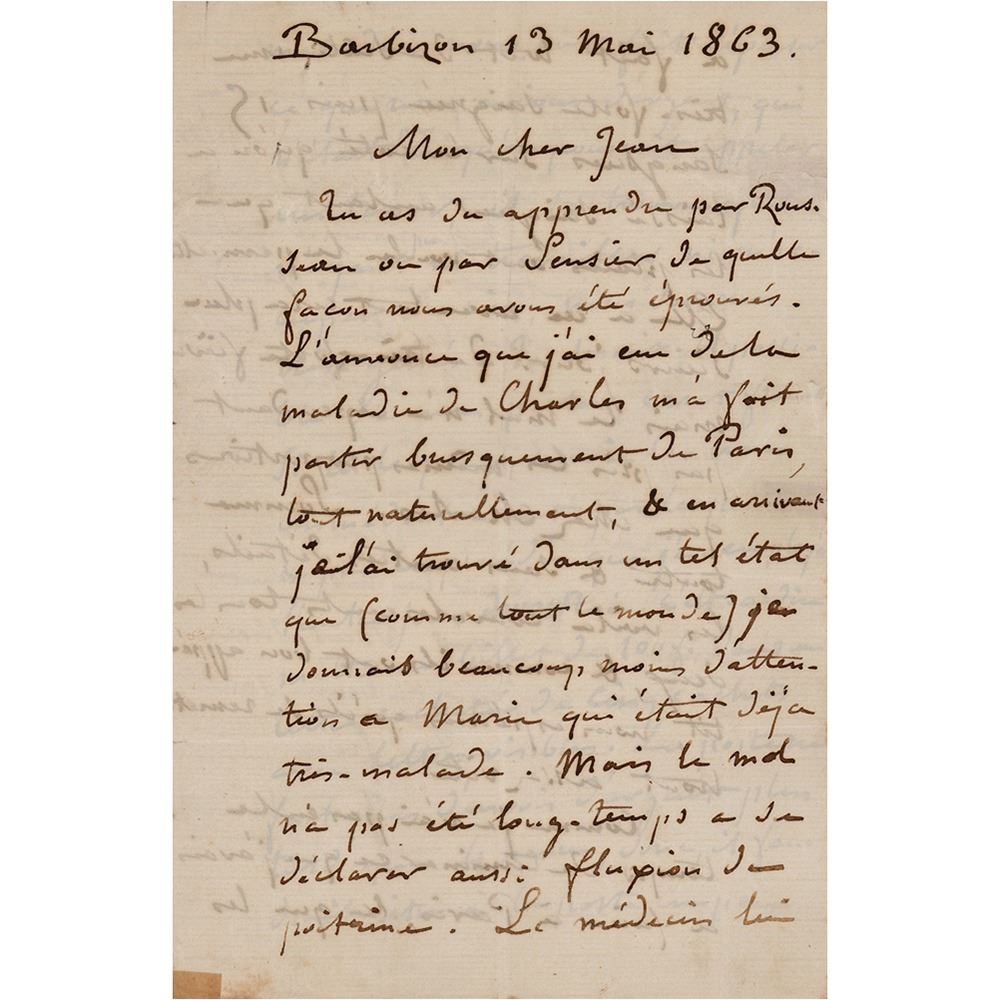 Barbizon 13 Mai 1863.
Mon cher Jean
Tu as du apprendre par Rous-
seau ou par Sensier de quelle
façon nous avons été éprouvés.
L'annonce que j'ai eue de la
maladie de Charles m'a fait
partir brusquement de Paris,
tout naturellement, & en arrivant
je l'ai trouvé dans un tel état
que (comme tout le monde) je
donnais beaucoup moins d'atten-
tion a Marie qui était déja
très-malade. Mais le mal
n'a pas été long-temps a se
déclarer aussi fluxion de
poitrine. Le médecin lui